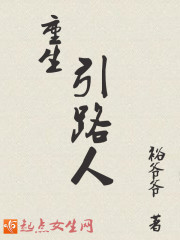 重生
引路人
裕爷爷 著
起点女生网